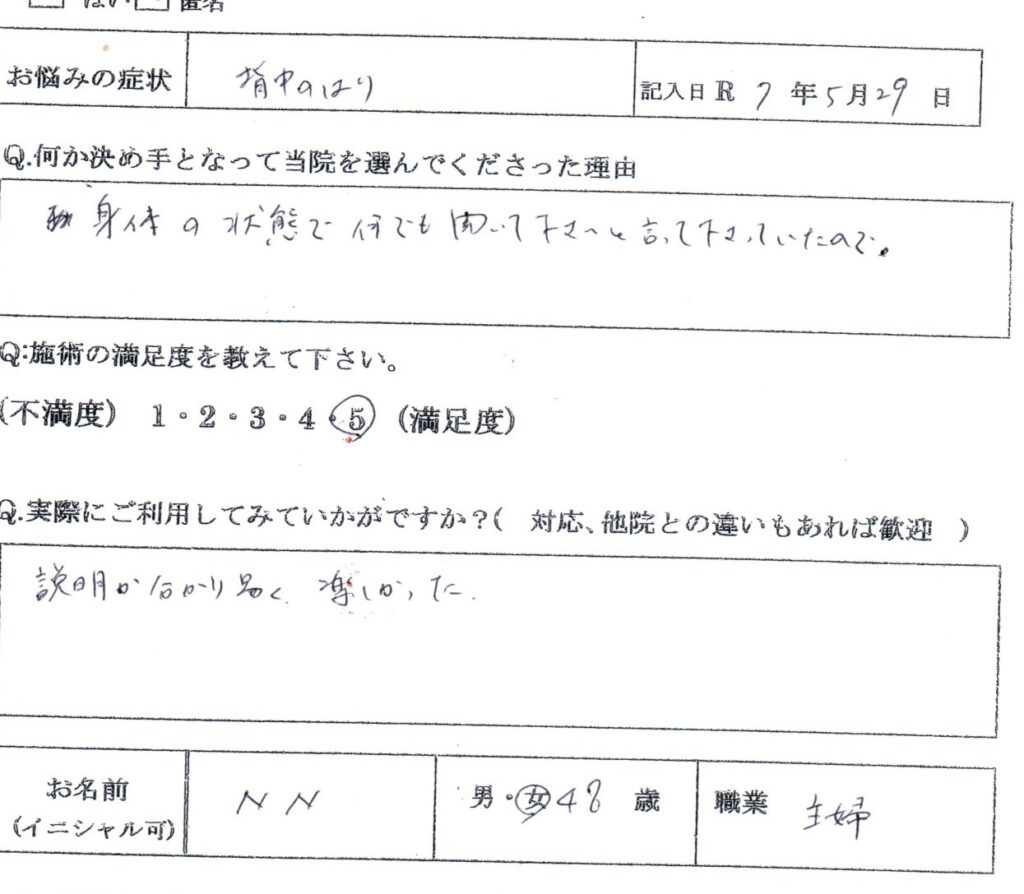 はい 匿名
お悩みの症状 背中のはり 記入日 R 7 年 5 月 29 日
Q.何か決め手となって当院を選んでくださった理由
身体の状態で何でも聞いて下さいと言って下さっていたので。
Q:施術の満足度を教えて下さい。
(不満度) 1・2・3・4・5 (満足度)
Q.実際にご利用してみていかがですか?( 対応、他院との違いもあれば歓迎 )
説明が分かり易く、楽しかった.
お名前 (イニシャル可) NN 男・女 48 歳 職業 主婦